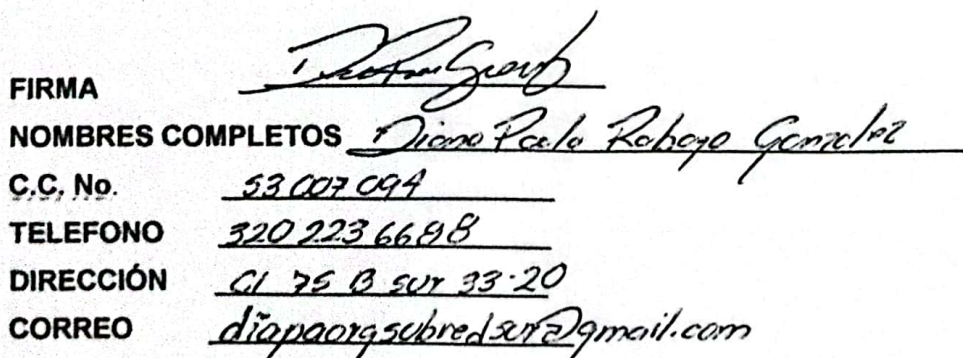 FIRMA
NOMBRES COMPLETOS Diana Paola Gonzalez
C.C. No. 53 007 094
TELEFONO 320 223 6688
DIRECCIÓN Cl 75 B sur 33-20
CORREO diapaorgsubredsur@gmail.com